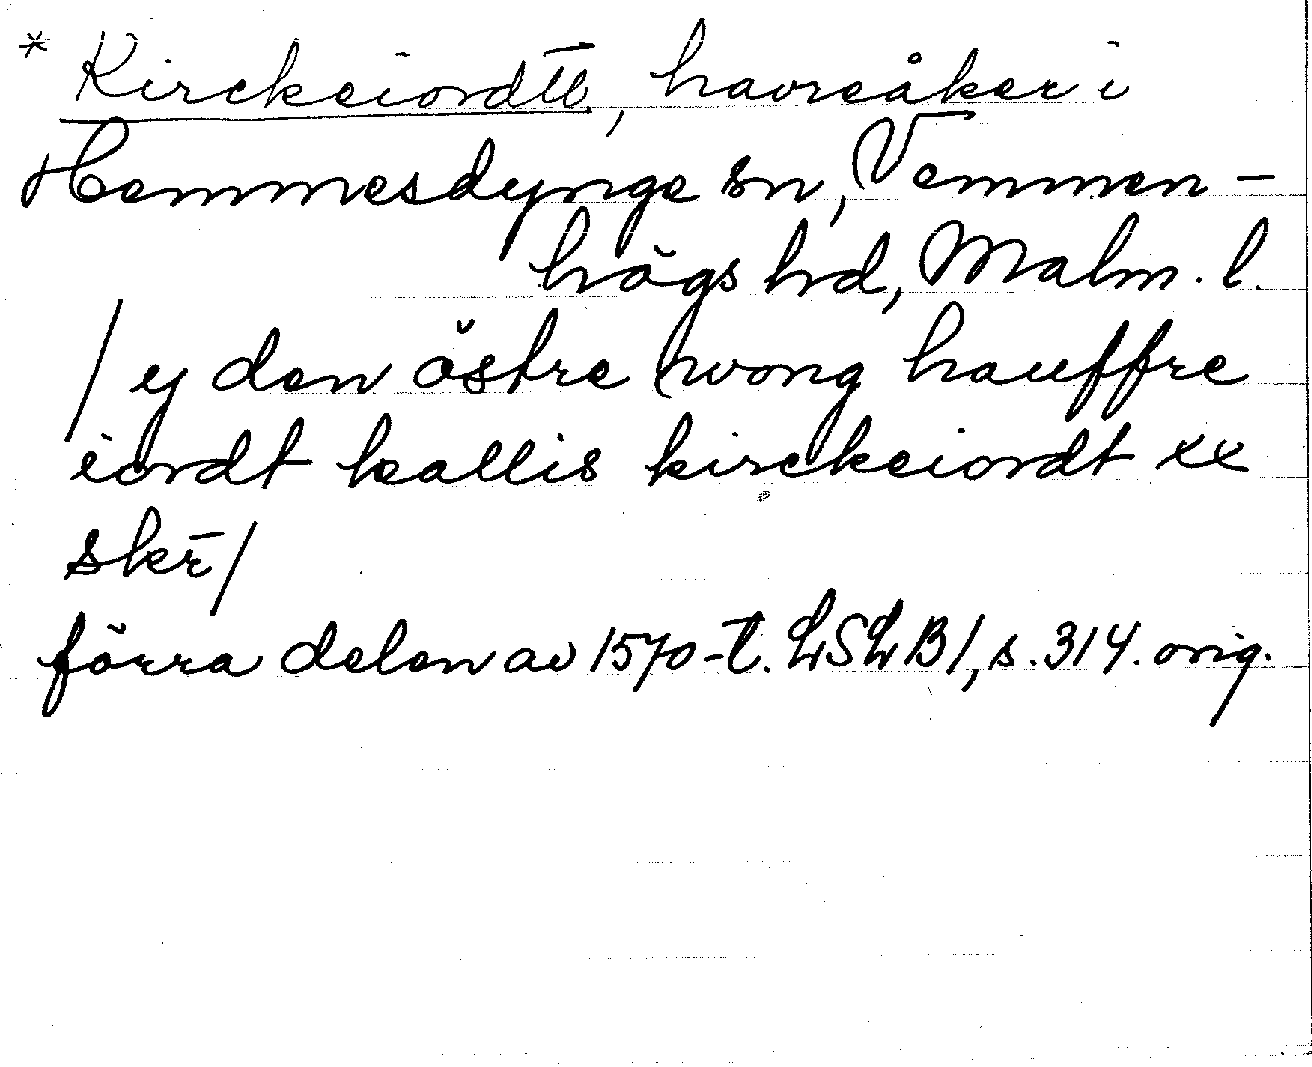 * Kirckeiordtt, havreåker i
Hemmesdynge sn, Vemmen-
högs hd, Malm. l.
/ y den östre wong hauffre
iordt kallis kirckeiordt xx
skr̄/
förra delen av 1570-t. LSLB1, s. 314. orig.